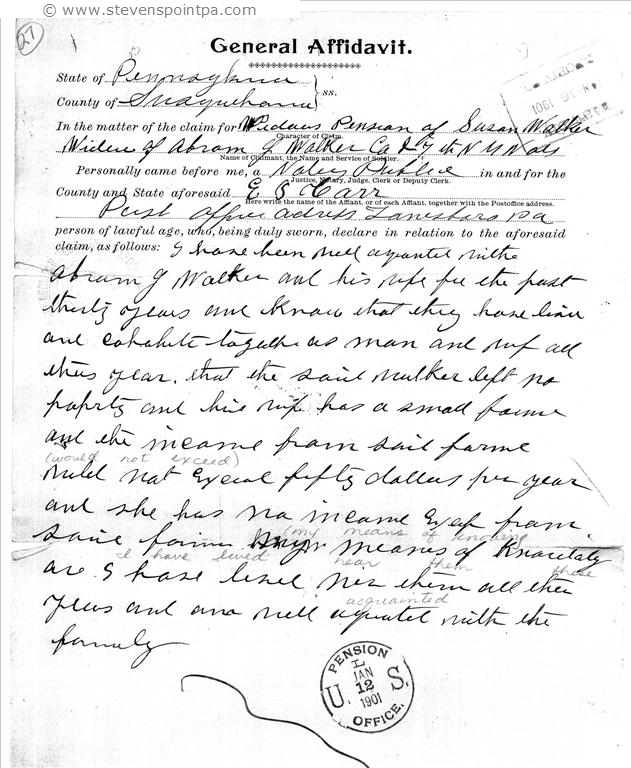 © www.stevenspointpa.com
27
General Affidavit.
State of Pennsylvania
County of Susquehanna } ss.
In the matter of the claim for Widows Pension of Susan Walker
Character of Claim.
Widow of Abram J Walker Co I N Y Vols
Name of Claimant, the Name and Service of Soldier.
Personally came before me, a Notary Public in and for the
Justice, Notary, Judge, Clerk or Deputy Clerk.
County and State aforesaid E S Carr
Here write name of the Affiant, or of each Affiant, together with the Postoffice address.
Post office adress Lanesboro Pa
person of lawful age, who, being duly sworn, declare in relation to the aforesaid
claim, as follows: I have been well aquated withe
Abram J Walker and his wife for the past
thirty years and know that they have livd
and cohabite togather as man and wife all
thes year. that the said Walker left no
poperty and his wife has a small farme
and the income from said farme
(would not exceed)
would not Exceed fifty dollars per year
and she has no income from
said farme my means of Knowledg
(my means of knowing
I have lived near them these
are I have lived near them all these
acquainted
years and am well aquated with the
family
PENSION OFFICE.
U. S.
JAN
12
1901
1901